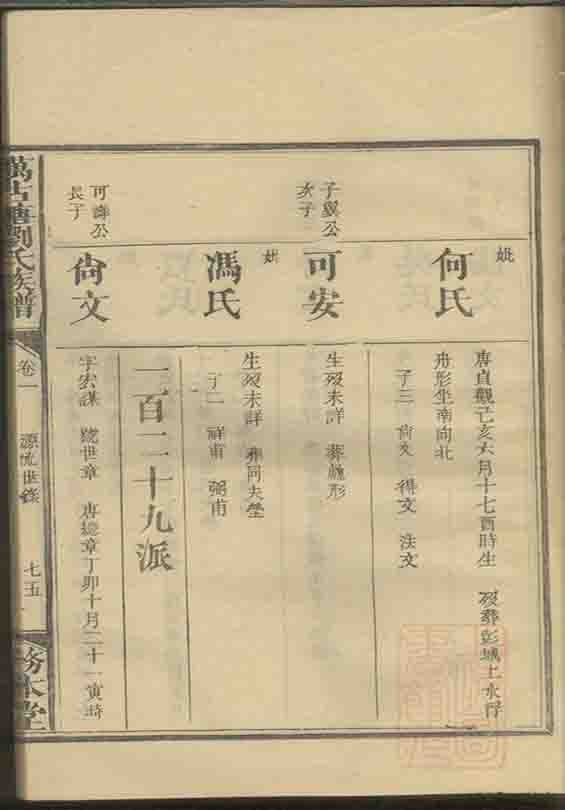 妣
何氏
唐貞觀己亥六月十七酉時生 歿葬彭城土水浮
舟形坐南向北
子三 尙文 得文 注文
子翼公
次子
可安
生歿未詳 葬龜形
妣
馮氏
生歿未詳 葬同夫塋
子二 祥甫 弼甫
一百二十九派
可諱公
長子
尙文
字宏謀 號世章 唐總章丁卯十月二十一寅時
萬古塘劉氏族譜
卷一
源流世錄
七五
務本堂